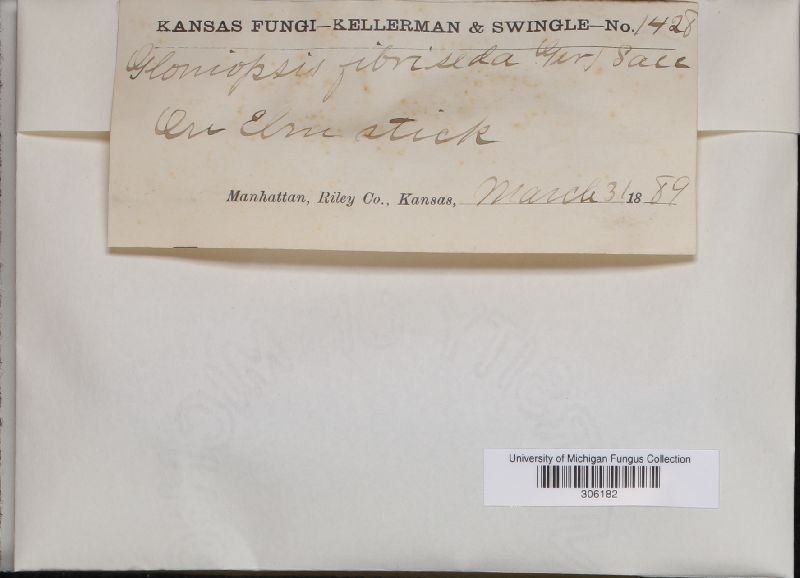 KANSAS FUNGI—KELLERMAN & SWINGLE—No. 1428
Gloniopsis fibriseda Ger) Sacc
On Elm stick
Manhattan, Riley Co., Kansas, March 31 1889
University of Michigan Fungus Collection
306182